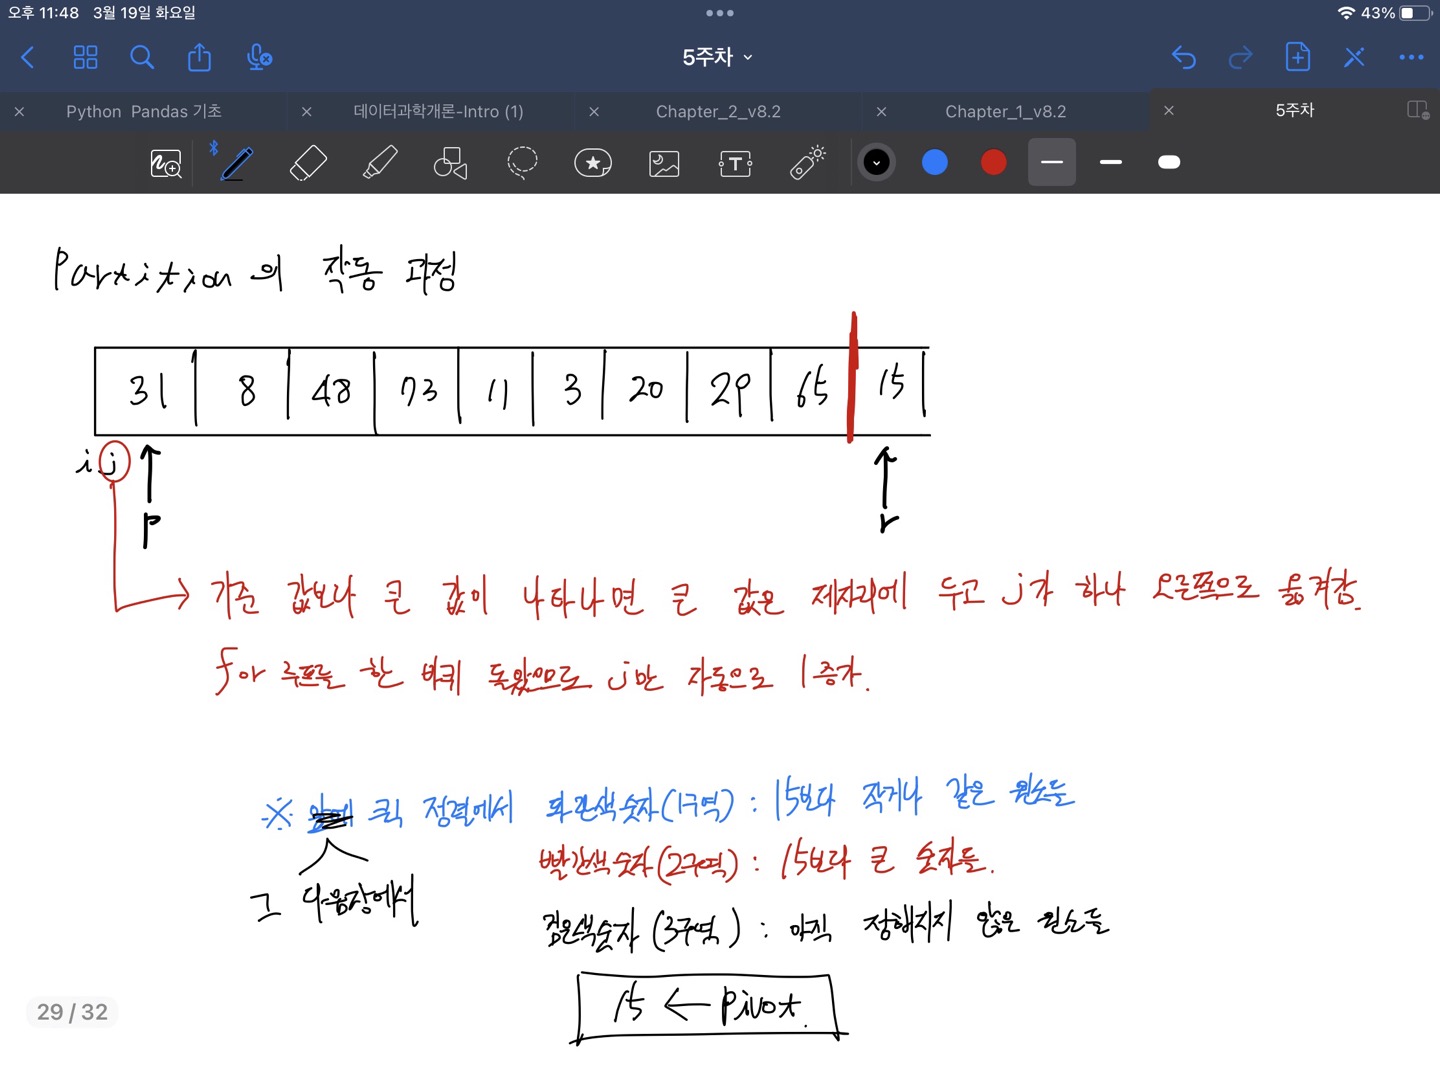 오후 11:48 3월 19일 화요일
43%
5주차
Python Pandas 기초
데이터과학개론-Intro (1)
Chapter_2_v8.2
Chapter_1_v8.2
5주차
Partition의 작동 과정
31 8 48 73 11 3 20 29 65 15
i j
p r
기준 값보다 큰 값이 나타나면 큰 값은 제자리에 두고 j가 하나 오른쪽으로 옮겨감.
for 루프를 한 바퀴 돌았으므로 j만 자동으로 1 증가.
※ 퀵 정렬에서 파란색 숫자(1구역) : 15보다 작거나 같은 원소들
빨간색 숫자(2구역) : 15보다 큰 숫자들.
그 다음장에서
검은색 숫자 (3구역) : 아직 정해지지 않은 원소들
15 ← Pivot.
29 / 32